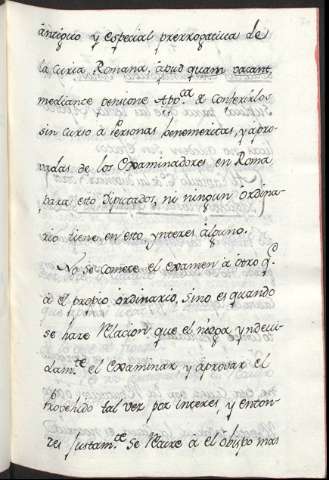 antiguo y especial prerrogativa de
la Curia Romana, apud quam vacant,
mediante pensione App.ca & conferirlos
sin curso à Personas benemeritas, y apro-
vadas de los Examinadores en Roma
para esto Diputados, ni ningun ordina-
rio tiene en esto ynteres alguno.
No se comete el examen à otro q.e
à el propio ordinario, sino es quando
se haze Relacion que el niega yndevi-
dam.te el Examinar y aprovar el
Provehido tal vez por interes, y enton-
zes Justam.te se Remite à el obispo mas